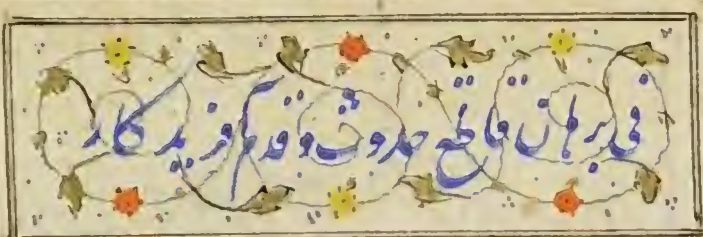 فی برهان قاطع حدوث و قدم آفریدکار